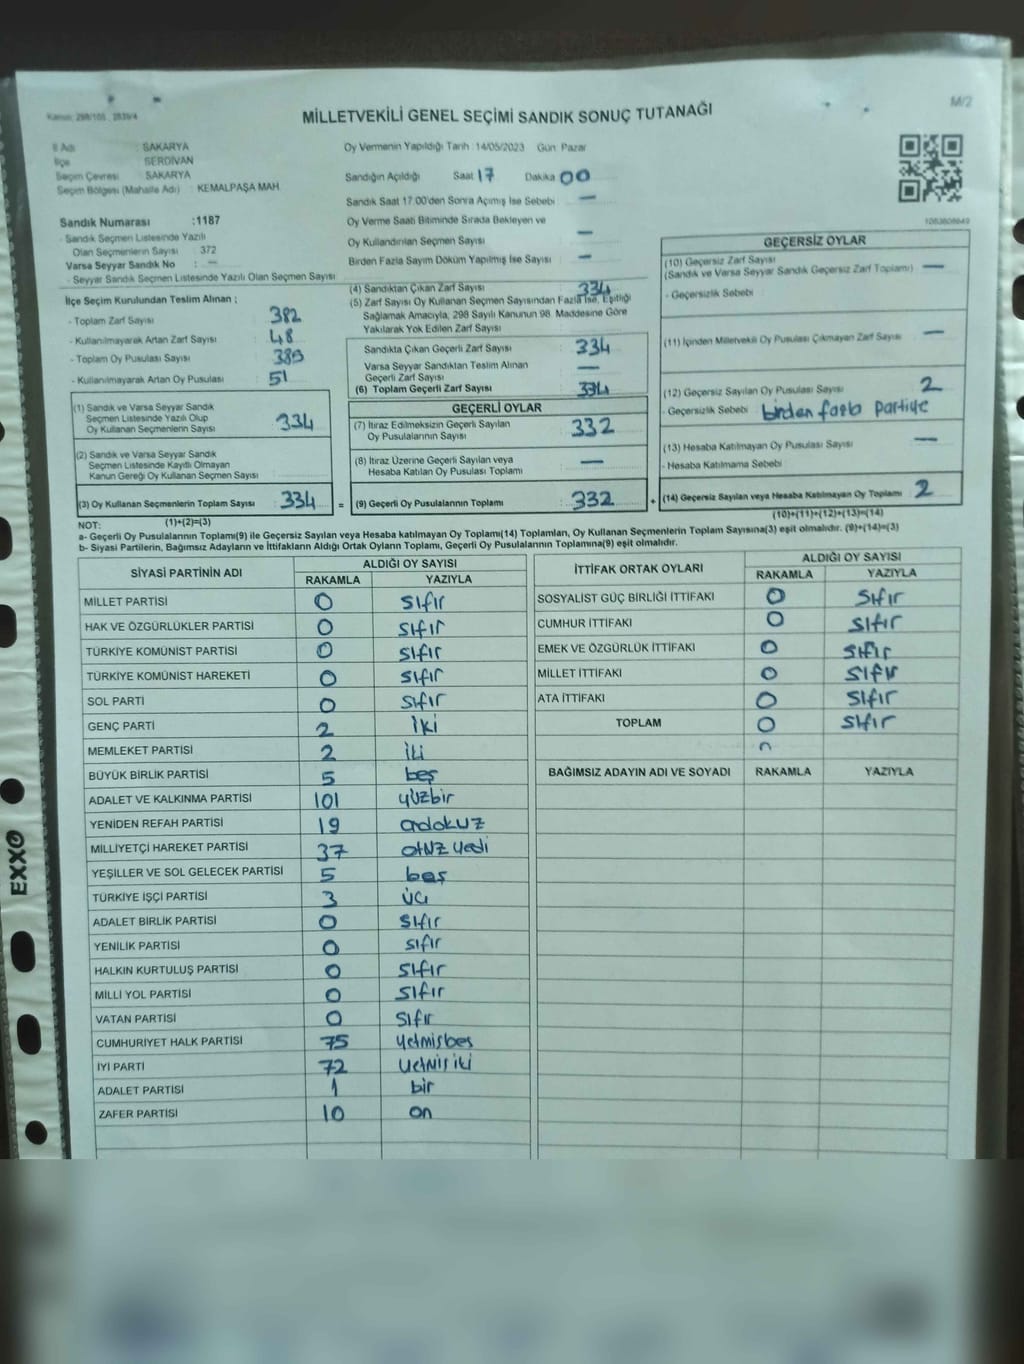 Kanun: 298/105 , 2839/4
MİLLETVEKİLİ GENEL SEÇİMİ SANDIK SONUÇ TUTANAĞI
M/2
İl Adı : SAKARYA
İlçe : SERDİVAN
Seçim Çevresi : SAKARYA
Seçim Bölgesi (Mahalle Adı) : KEMALPAŞA MAH
Sandık Numarası :1187
- Sandık Seçmen Listesinde Yazılı
Olan Seçmenlerin Sayısı : 372
Varsa Seyyar Sandık No : —
- Seyyar Sandık Seçmen Listesinde Yazılı Olan Seçmen Sayısı
Oy Vermenin Yapıldığı Tarih : 14/05/2023 Gün: Pazar
Sandığın Açıldığı Saat 17 Dakika 00
Sandık Saat 17.00'den Sonra Açılmış İse Sebebi : —
Oy Verme Saati Bitiminde Sırada Bekleyen ve
Oy Kullandırılan Seçmen Sayısı : —
Birden Fazla Sayım Döküm Yapılmış İse Sayısı : —
İlçe Seçim Kurulundan Teslim Alınan ;
- Toplam Zarf Sayısı : 382
- Kullanılmayarak Artan Zarf Sayısı : 48
- Toplam Oy Pusulası Sayısı : 385
- Kullanılmayarak Artan Oy Pusulası : 51
(1) Sandık ve Varsa Seyyar Sandık
Seçmen Listesinde Yazılı Olup
Oy Kullanan Seçmenlerin Sayısı : 334
(2) Sandık ve Varsa Seyyar Sandık
Seçmen Listesinde Kayıtlı Olmayan
Kanun Gereği Oy Kullanan Seçmen Sayısı :
(3) Oy Kullanan Seçmenlerin Toplam Sayısı : 334 =
(1)+(2)=(3)
(4) Sandıktan Çıkan Zarf Sayısı : 334
(5) Zarf Sayısı Oy Kullanan Seçmen Sayısından Fazla İse, Eşitliği
Sağlamak Amacıyla, 298 Sayılı Kanunun 98. Maddesine Göre
Yakılarak Yok Edilen Zarf Sayısı :
Sandıkta Çıkan Geçerli Zarf Sayısı : 334
Varsa Seyyar Sandıktan Teslim Alınan
Geçerli Zarf Sayısı : —
(6) Toplam Geçerli Zarf Sayısı : 334
GEÇERLİ OYLAR
(7) İtiraz Edilmeksizin Geçerli Sayılan
Oy Pusulalarının Sayısı : 332
(8) İtiraz Üzerine Geçerli Sayılan veya
Hesaba Katılan Oy Pusulası Toplamı : —
(9) Geçerli Oy Pusulalarının Toplamı : 332 +
1083606649
GEÇERSİZ OYLAR
(10) Geçersiz Zarf Sayısı
(Sandık ve Varsa Seyyar Sandık Geçersiz Zarf Toplamı) : —
- Geçersizlik Sebebi :
(11) İçinden Milletvekili Oy Pusulası Çıkmayan Zarf Sayısı : —
(12) Geçersiz Sayılan Oy Pusulası Sayısı : 2
- Geçersizlik Sebebi : birden fazla partiye
(13) Hesaba Katılmayan Oy Pusulası Sayısı : —
- Hesaba Katılmama Sebebi :
(14) Geçersiz Sayılan veya Hesaba Katılmayan Oy Toplamı : 2
(10)+(11)+(12)+(13)=(14)
NOT:
a- Geçerli Oy Pusulalarının Toplamı(9) ile Geçersiz Sayılan veya Hesaba katılmayan Oy Toplamı(14) Toplamları, Oy Kullanan Seçmenlerin Toplam Sayısına(3) eşit olmalıdır. (9)+(14)=(3)
b- Siyasi Partilerin, Bağımsız Adayların ve İttifakların Aldığı Ortak Oyların Toplamı, Geçerli Oy Pusulalarının Toplamına(9) eşit olmalıdır.
SİYASİ PARTİNİN ADI ALDIĞI OY SAYISI
RAKAMLA YAZIYLA
MİLLET PARTİSİ 0 sıfır
HAK VE ÖZGÜRLÜKLER PARTİSİ 0 sıfır
TÜRKİYE KOMÜNİST PARTİSİ 0 sıfır
TÜRKİYE KOMÜNİST HAREKETİ 0 sıfır
SOL PARTİ 0 sıfır
GENÇ PARTİ 2 iki
MEMLEKET PARTİSİ 2 iki
BÜYÜK BİRLİK PARTİSİ 5 beş
ADALET VE KALKINMA PARTİSİ 101 yüzbir
YENİDEN REFAH PARTİSİ 19 ondokuz
MİLLİYETÇİ HAREKET PARTİSİ 37 otuz yedi
YEŞİLLER VE SOL GELECEK PARTİSİ 5 beş
TÜRKİYE İŞÇİ PARTİSİ 3 üç
ADALET BİRLİK PARTİSİ 0 sıfır
YENİLİK PARTİSİ 0 sıfır
HALKIN KURTULUŞ PARTİSİ 0 sıfır
MİLLİ YOL PARTİSİ 0 sıfır
VATAN PARTİSİ 0 sıfır
CUMHURİYET HALK PARTİSİ 75 yetmisbes
İYİ PARTİ 72 yetmis iki
ADALET PARTİSİ 1 bir
ZAFER PARTİSİ 10 on
İTTİFAK ORTAK OYLARI ALDIĞI OY SAYISI
RAKAMLA YAZIYLA
SOSYALİST GÜÇ BİRLİĞİ İTTİFAKI 0 sıfır
CUMHUR İTTİFAKI 0 sıfır
EMEK VE ÖZGÜRLÜK İTTİFAKI 0 sıfır
MİLLET İTTİFAKI 0 sıfır
ATA İTTİFAKI 0 sıfır
TOPLAM 0 sıfır
BAĞIMSIZ ADAYIN ADI VE SOYADI RAKAMLA YAZIYLA
EXXO